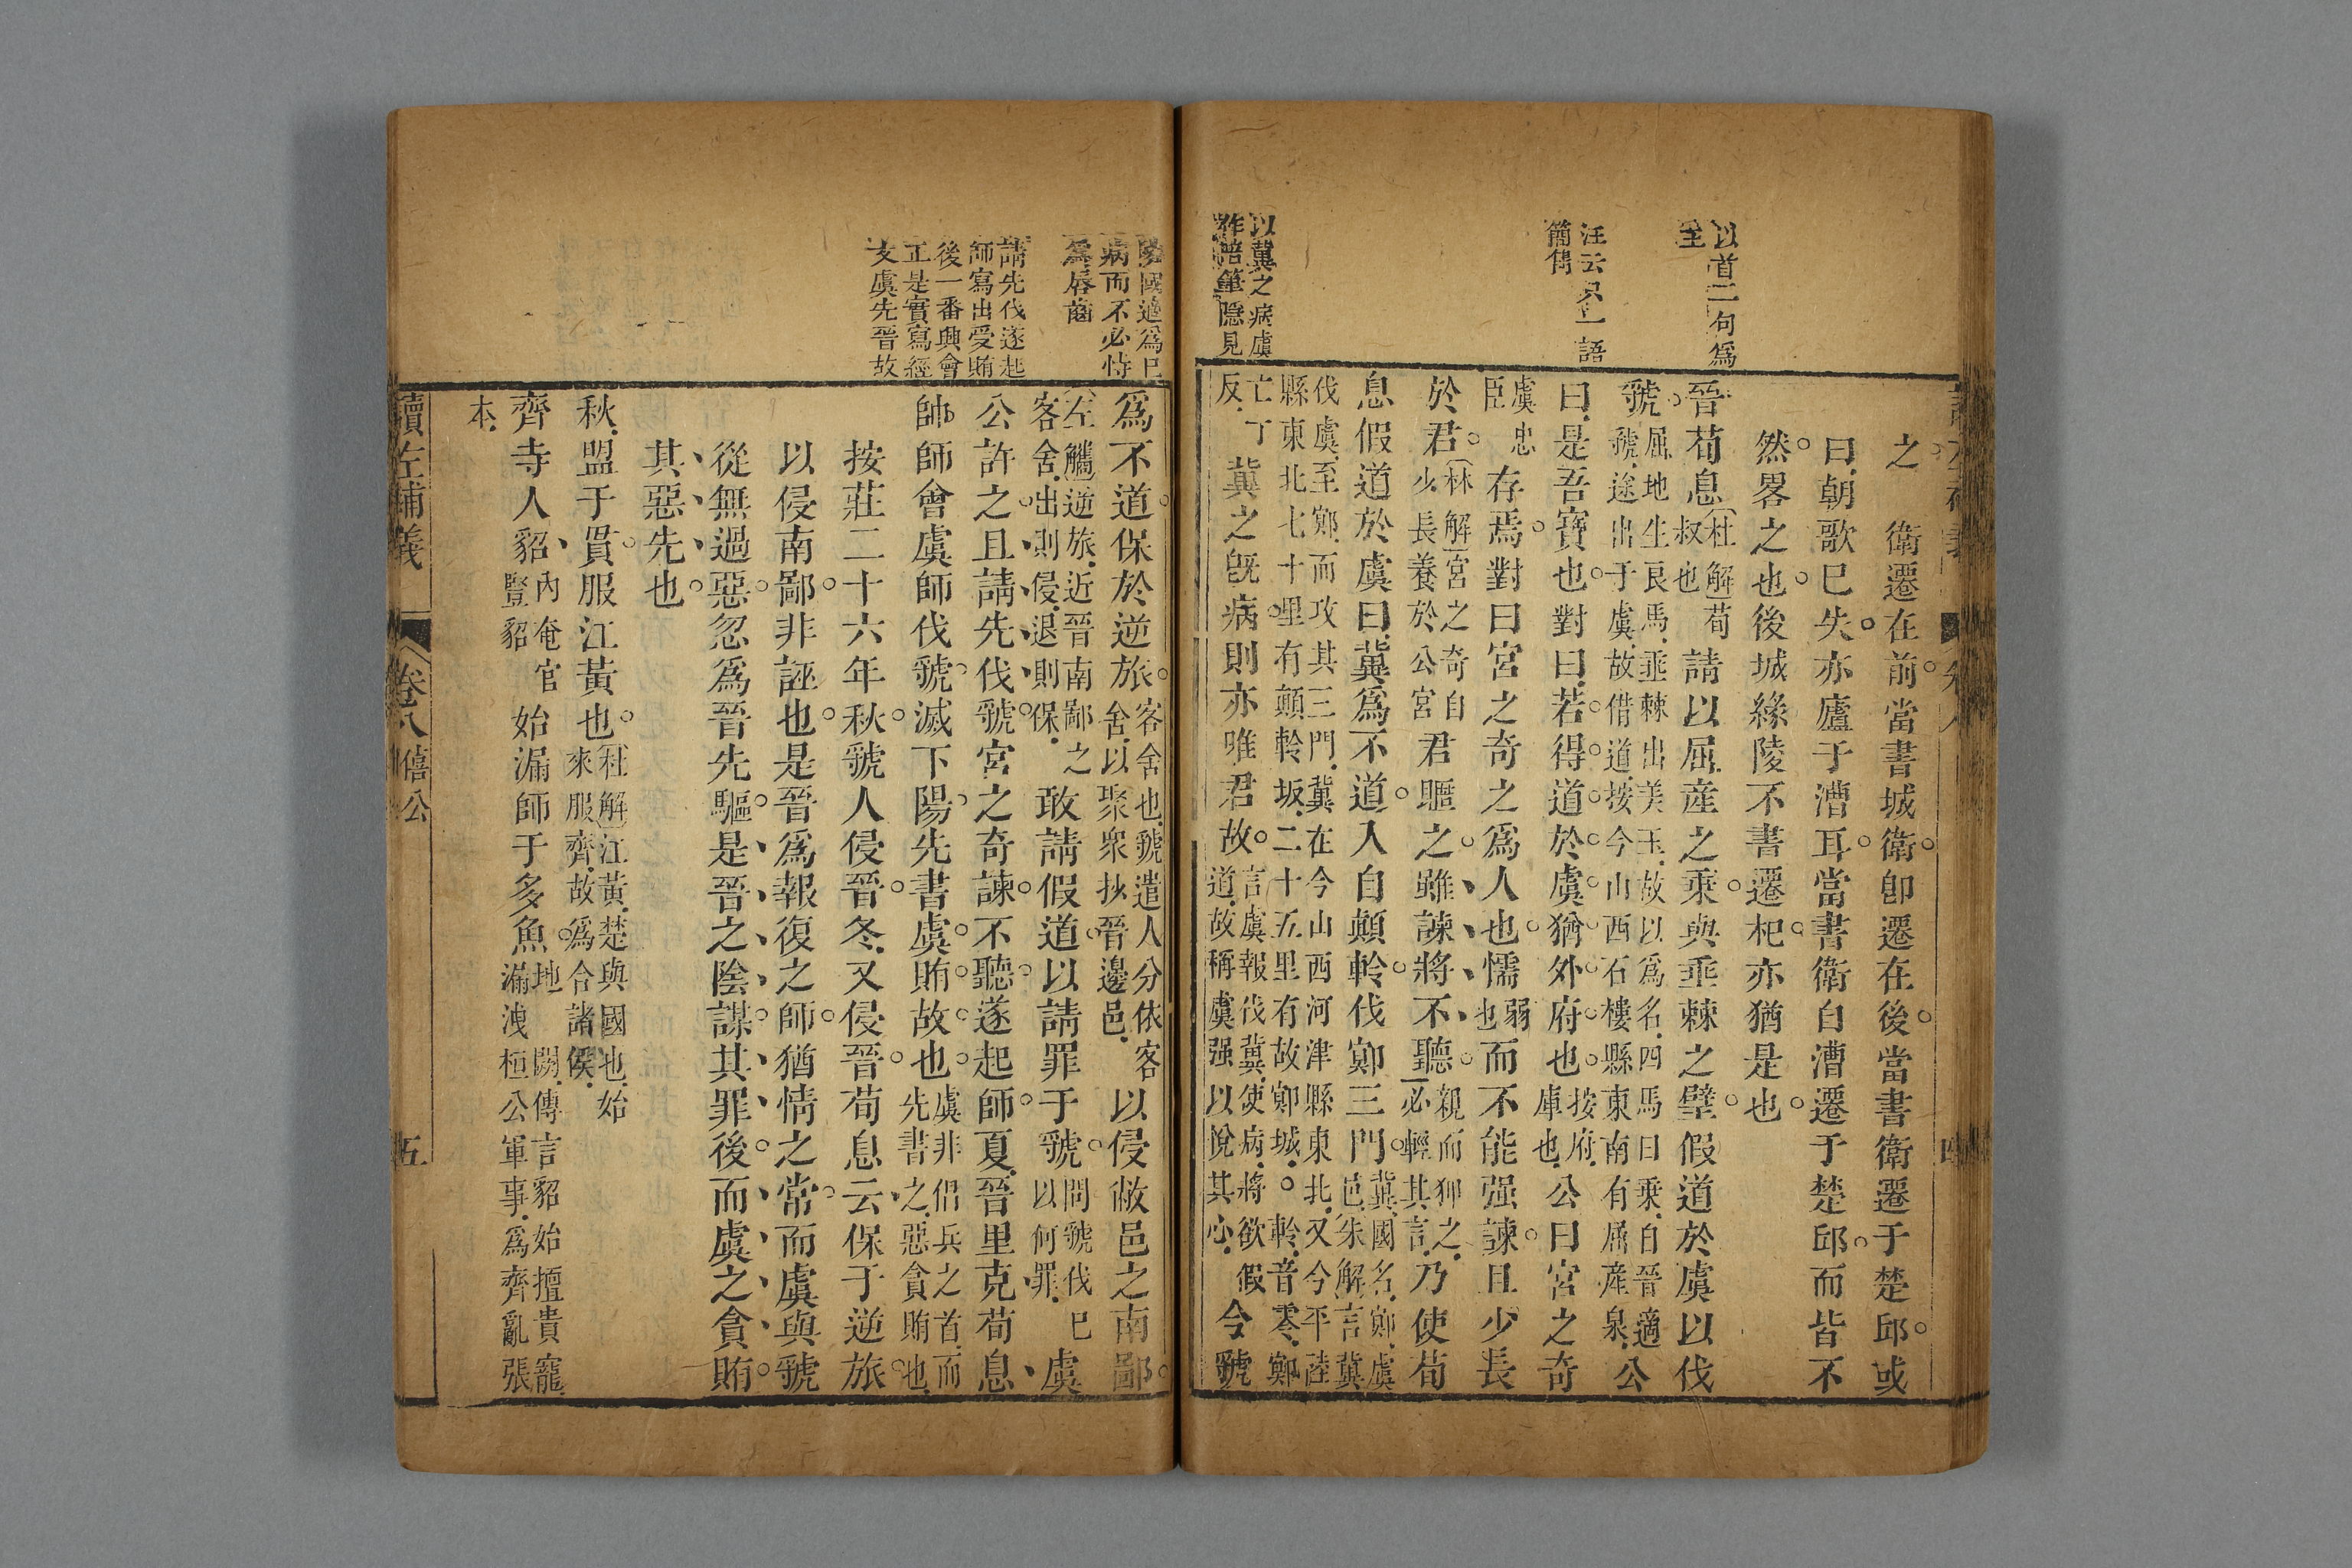 以首二句爲
至
汪云只一語
簡雋
以冀之病虞
作陪筆隱見
之　衛遷在前當書城衛卽遷在後當書衛遷于楚邱或
曰朝歌巳失亦廬于漕耳當書衛自漕遷于楚邱而皆不
然畧之也後城緣陵不書遷杞亦猶是也
晉荀息杜解荀叔也請以屈產之乘與垂棘之璧假道於虞以伐
虢屈地生良馬垂棘出美玉故以爲名四馬曰乘自晉適虢途出于虞故借道按今山西石樓縣東南有屈產泉公
曰是吾寶也對曰若得道於虞猶外府也按府庫也公曰宮之奇
虞忠臣存焉對曰宮之奇之爲人也懦弱也而不能强諫且少長
於君林解宮之奇自少長養於公宮君暱之雖諫將不聽親而狎之必輕其言乃使荀
息假道於虞曰冀爲不道入自顛軨伐鄍三門冀國名鄍虞邑朱解言冀
伐虞至鄍而攻其三門冀在今山西河津縣東北又今平陸
縣東北七十里有顛軨坂二十五里有故鄍城軨音零鄍
亡丁反冀之旣病則亦唯君故言虞報伐冀使病將欲假道故稱虞强以悅其心今虢
讀左補義　卷八　四
隣國適爲巳
病而不必恃
爲唇齒
請先伐遂起
師寫出受賄
後一番興會
正是實寫經
文虞先晉故
爲不道保於逆旅客舍也虢遣人分依客舍以聚衆抄晉邊邑以侵敝邑之南鄙
左觿逆旅近晉南鄙之客舍出則侵退則保敢請假道以請罪于虢問虢伐巳以何罪虞
公許之且請先伐虢宮之奇諫不聽遂起師夏晉里克荀息
帥師會虞師伐虢滅下陽先書虞賄故也虞非倡兵之首而先書之惡貪賄也
按莊二十六年秋虢人侵晉冬又侵晉荀息云保于逆旅
以侵南鄙非誣也是晉爲報復之師猶情之常而虞與虢
從無過惡忽爲晉先驅是晉之陰謀其罪後而虞之貪賄
其惡先也
秋盟于貫服江黃也杜解江黃楚與國也始來服齊故爲合諸侯
齊寺人貂內奄官豎貂始漏師于多魚地闕傳言貂始擅貴寵漏洩桓公軍事爲齊亂張
本
讀左補義　卷八僖公　五